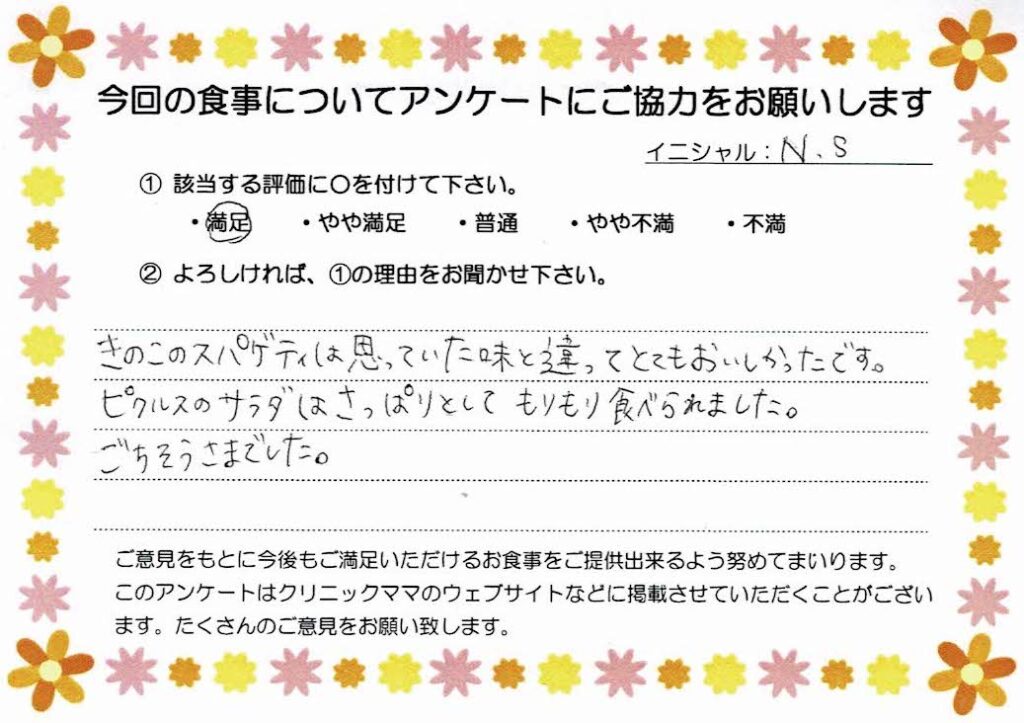 今回の食事についてアンケートにご協力をお願いします
イニシャル：N.S
① 該当する評価に〇を付けて下さい。
・満足 ・やや満足 ・普通 ・やや不満 ・不満
② よろしければ、①の理由をお聞かせ下さい。
きのこのスパゲティは思っていた味と違ってとてもおいしかったです。
ピクルスのサラダはさっぱりとして もりもり食べられました。
ごちそうさまでした。
ご意見をもとに今後もご満足いただけるお食事をご提供出来るよう努めてまいります。
このアンケートはクリニックママのウェブサイトなどに掲載させていただくことがござい
ます。たくさんのご意見をお願い致します。